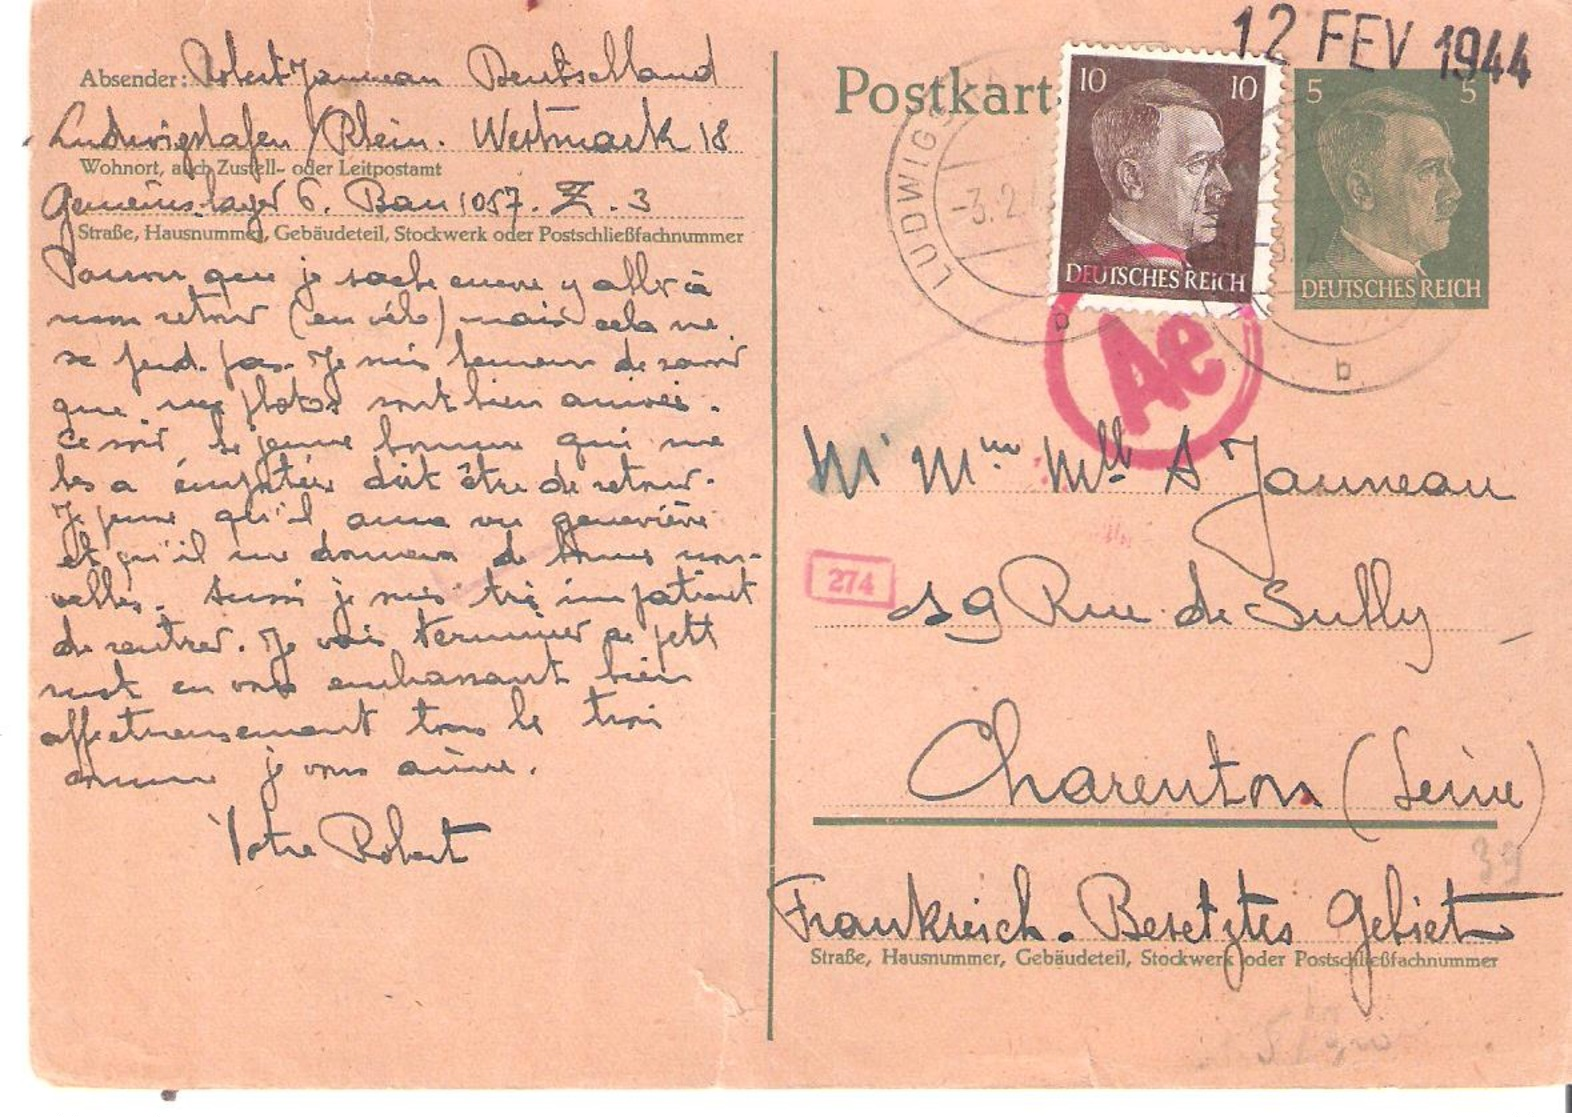 12 FEV 1944
Absender: Robert Jauneau Deutschland
Ludwigshafen / Rhein. Westmark 18
Wohnort, auch Zustell- oder Leitpostamt
Gemeins.lager 6. Bau 1057. Z. 3
Straße, Hausnummer, Gebäudeteil, Stockwerk oder Postschließfachnummer
que je sache encore y aller à
mon retour (en vélo) mais cela ne
se perd pas. Je suis heureux de savoir
que mes photos sont bien arrivées.
Ce soir le jeune homme qui me
les a emportées doit être de retour.
Je pense qu'il aura vu Geneviève
et qu'il me donnera de bonnes nou-
velles. Aussi je suis très impatient
de rentrer. Je vais terminer ce petit
mot en vous embrassant bien
affectueusement tous les trois
comme je vous aime.
Votre Robert
Postkart
10 10
DEUTSCHES REICH
5 5
DEUTSCHES REICH
LUDWIGS
-3.2.
b
b
Ae
Mr Mme Mlle A Jauneau
274
19 Rue de Sully
Charenton (Seine)
39
Frankreich - Besetztes Gebiet
Straße, Hausnummer, Gebäudeteil, Stockwerk oder Postschließfachnummer